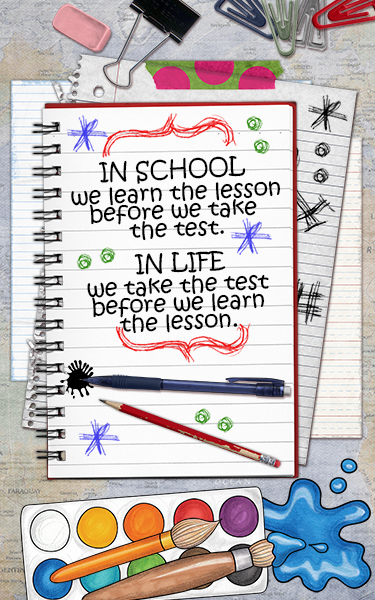 IN SCHOOL
we learn the lesson
before we take
the test.
IN LIFE
we take the test
before we learn
the lesson.
PARAGUAY